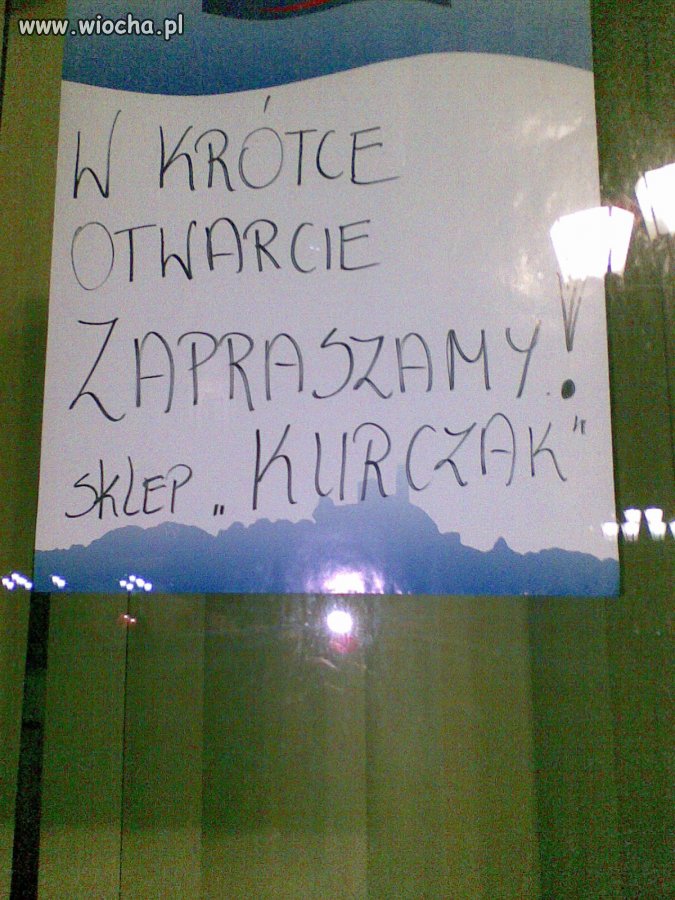 www.wiocha.pl
W KRÓTCE
OTWARCIE
ZAPRASZAMY!
SKLEP „KURCZAK”